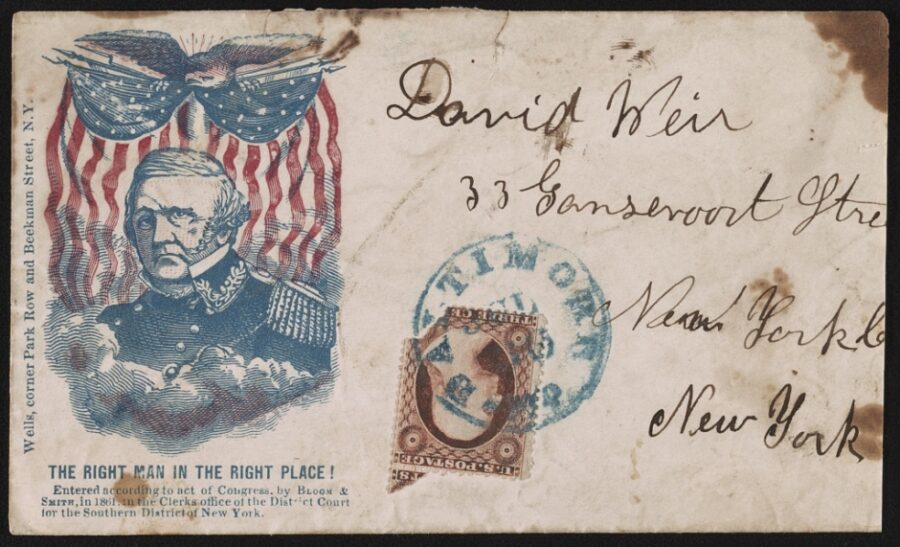 Wells, corner Park Row and Beekman Street, N.Y.
THE RIGHT MAN IN THE RIGHT PLACE!
Entered according to act of Congress, by BLOOM &
SMITH, in 1861, in the Clerks office of the District Court
for the Southern District of New York.
David Weir
33 Gansevoort Stre
New York C
New York
TIMORE
THREE CE
U.S. POSTAGE